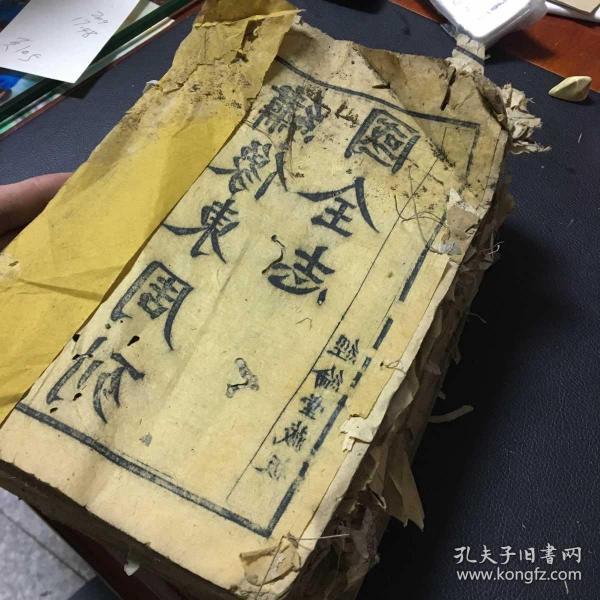 繡像東周列
國全志
經綸堂藏板
孔夫子旧书网
www.kongfz.com